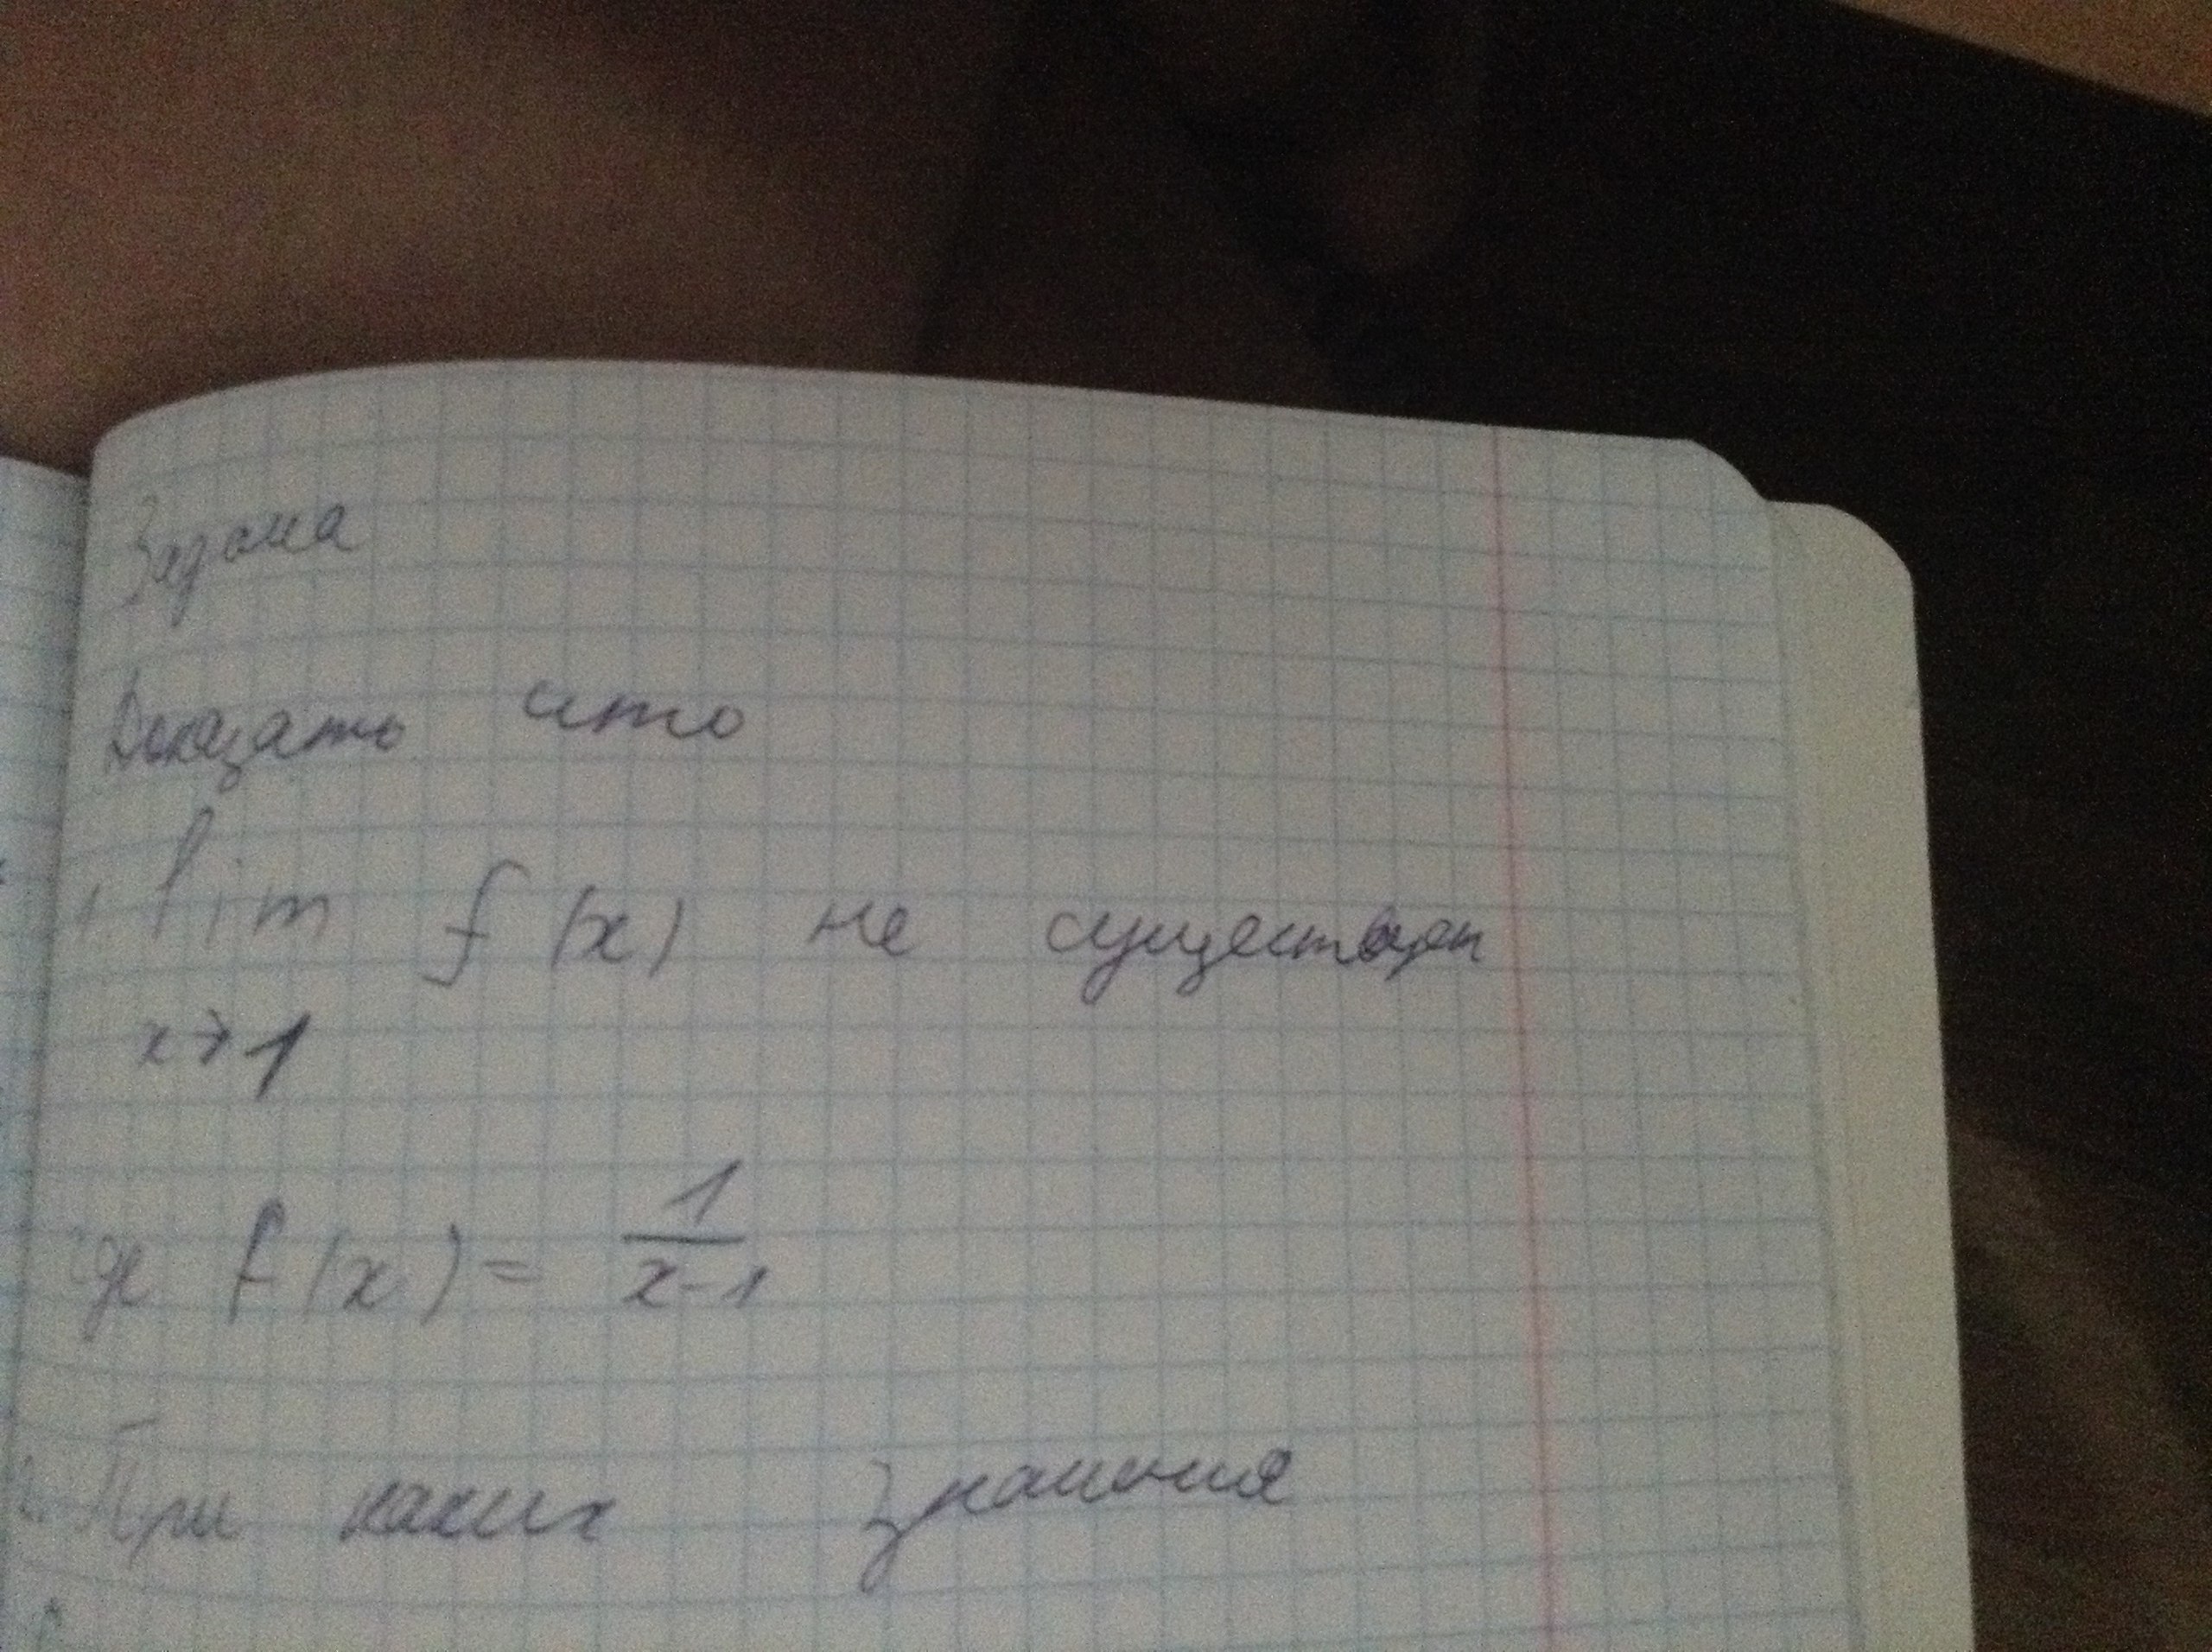 Задача
Доказать что
1. lim f(x) не существует
x→1
где f(x) = 1/(x-1)
2. При каких значения